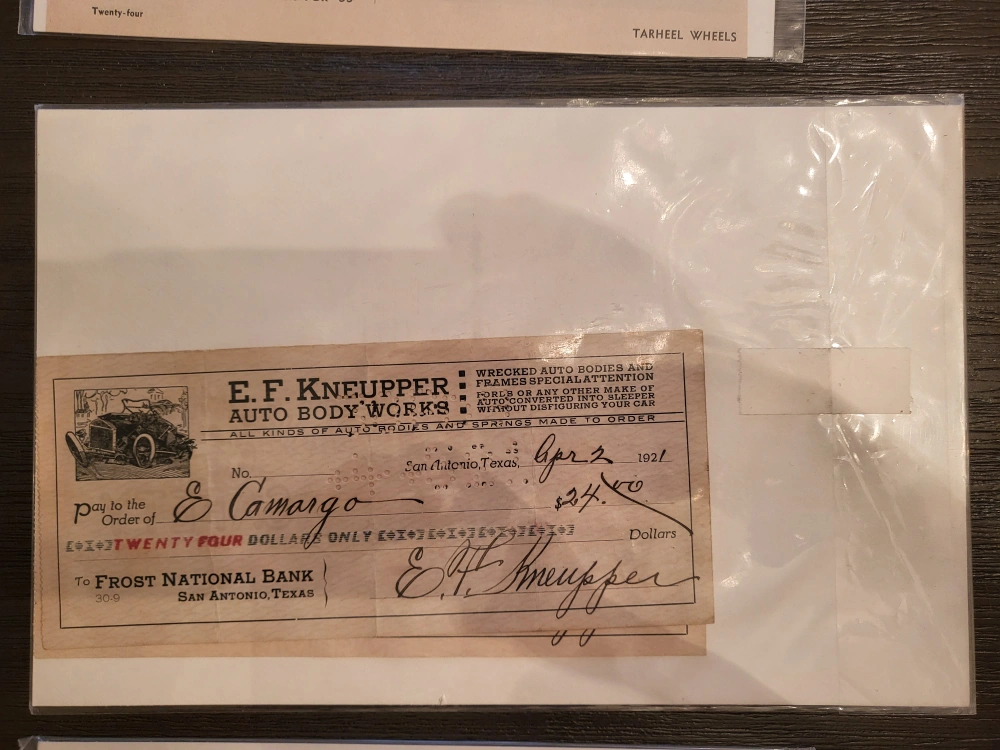 Twenty-four
TARHEEL WHEELS
E. F. KNEUPPER
AUTO BODY WORKS
WRECKED AUTO BODIES AND
FRAMES SPECIAL ATTENTION
FORDS OR ANY OTHER MAKE OF
AUTO CONVERTED INTO SLEEPER
WITHOUT DISFIGURING YOUR CAR
ALL KINDS OF AUTO BODIES AND SPRINGS MADE TO ORDER
No.
San Antonio, Texas, Apr 2 1921
Pay to the
Order of E Camargo $24.00
TWENTY FOUR DOLLARS ONLY Dollars
To FROST NATIONAL BANK
30-9 SAN ANTONIO, TEXAS
E. F. Kneupper